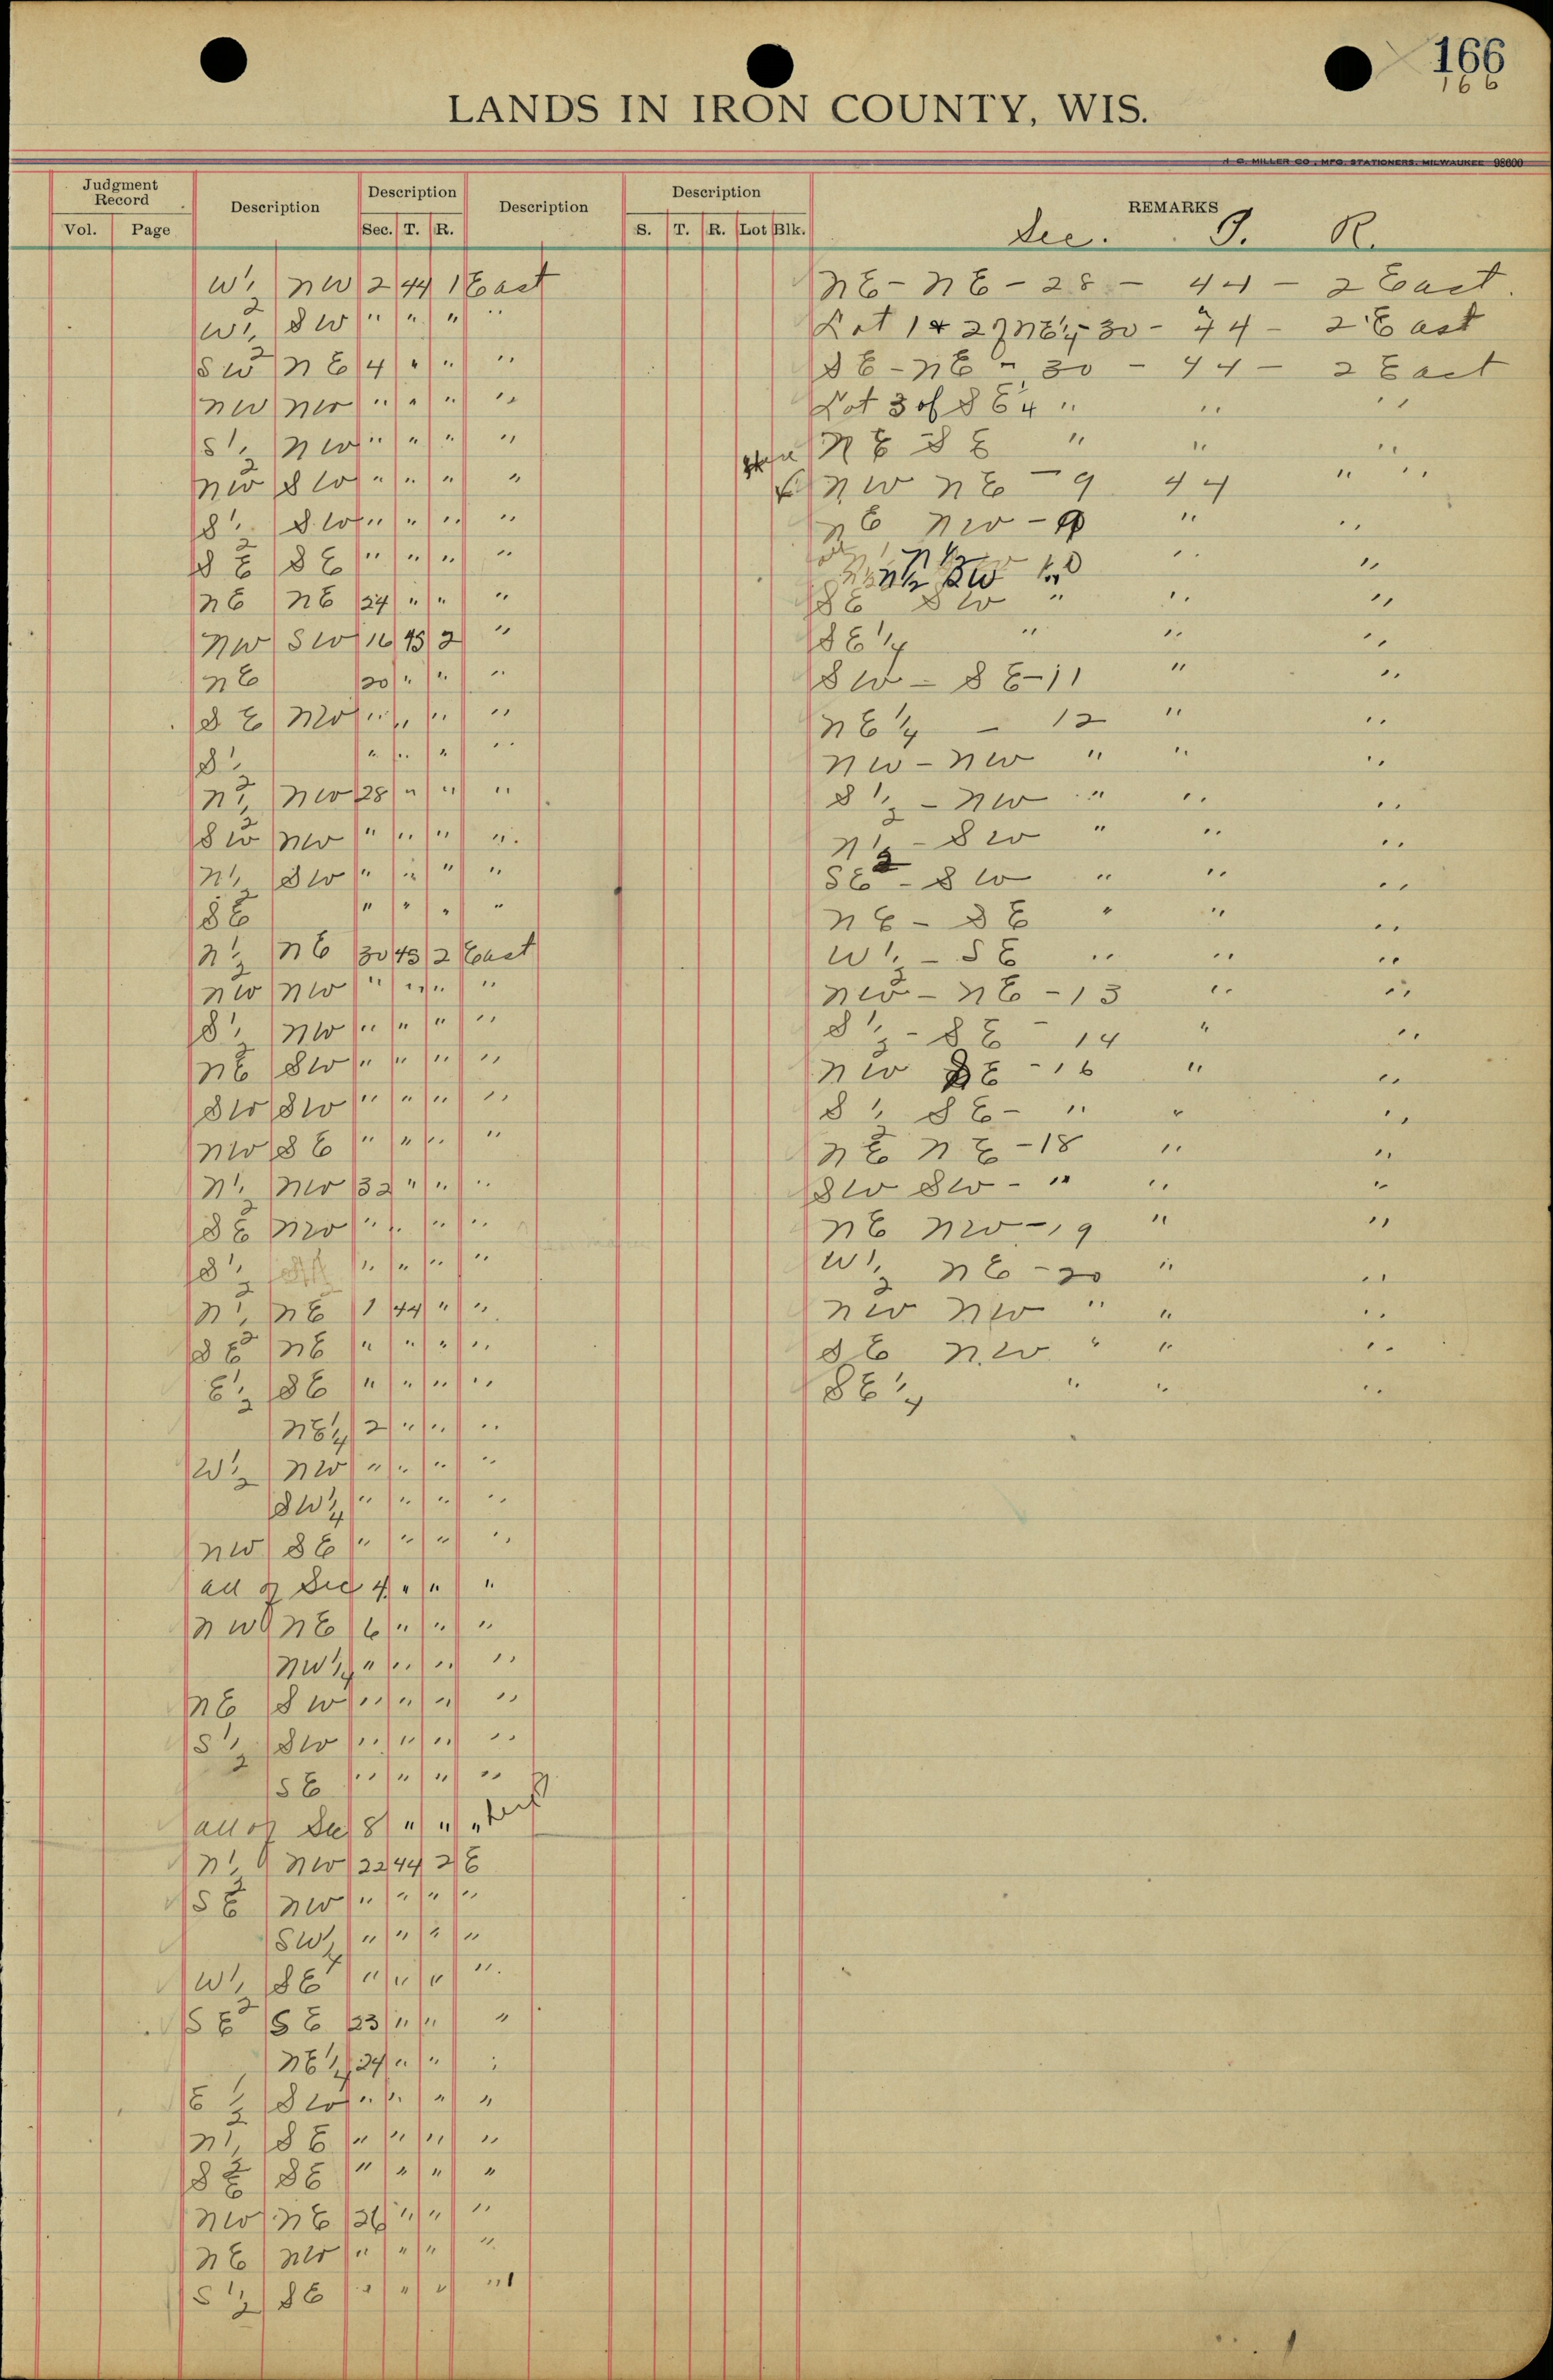 166
166
LANDS IN IRON COUNTY, WIS.
C. MILLER CO., MFG. STATIONERS, MILWAUKEE 98600
Judgment Record Description Description Description Description REMARKS
Vol. Page Sec. T. R. S. T. R. Lot Blk. Sec. T. R.
W½ NW 2 44 1 East
W½ SW " " " "
SW NE 4 " " "
NW NW " " " "
S½ NW " " " "
NW SW " " " "
S½ SW " " " "
SE SE " " " "
NE NE 24 " " "
NW SW 16 45 2 "
NE 20 " " "
SE NW " " " "
S½ " " " "
N½ NW 28 " " "
SW NW " " " "
N½ SW " " " "
SE " " " "
N½ NE 30 45 2 East
NW NW " " " "
S½ NW " " " "
NE SW " " " "
SW SW " " " "
NW SE " " " "
N½ NW 32 " " "
SE NW " " " "
S½ " " " "
N½ NE 1 44 " "
SE NE " " " "
E½ SE " " " "
NE¼ 2 " " "
W½ NW " " " "
SW¼ " " " "
NW SE " " " "
all of Sec 4 " " "
NW NE 6 " " "
NW¼ " " " "
NE SW " " " "
S½ SW " " " "
SE " " " "
all of Sec 8 " " "
N½ NW 22 44 2 E
SE NW " " " "
SW¼ " " " "
W½ SE " " " "
SE SE 23 " " "
NE¼ 24 " " "
E½ SW " " " "
N½ SE " " " "
SE SE " " " "
NW NE 26 " " "
NE NW " " " "
S½ SE " " " "
NE - NE - 28 - 44 - 2 East.
Lot 1 & 2 of NE¼ - 30 - 44 - 2 East
SE - NE - 30 - 44 - 2 East
Lot 3 of SE¼ " " "
NE SE " " "
NW NE - 9 44 " "
NE NW - 9 " "
N½ SW " "
SE SW " " "
SE¼ " " "
SW - SE - 11 " "
NE¼ - 12 " "
NW - NW " " "
S½ - NW " " "
N½ - SW " " "
SE - SW " " "
NE - SE " " "
W½ - SE " " "
NW - NE - 13 " "
S½ - SE - 14 " "
NW SE - 16 " "
S½ SE - " " "
NE NE - 18 " "
SW SW - " " "
NE NW - 19 " "
W½ NE - 20 " "
NW NW " " "
SE NW " " "
SE¼ " " "